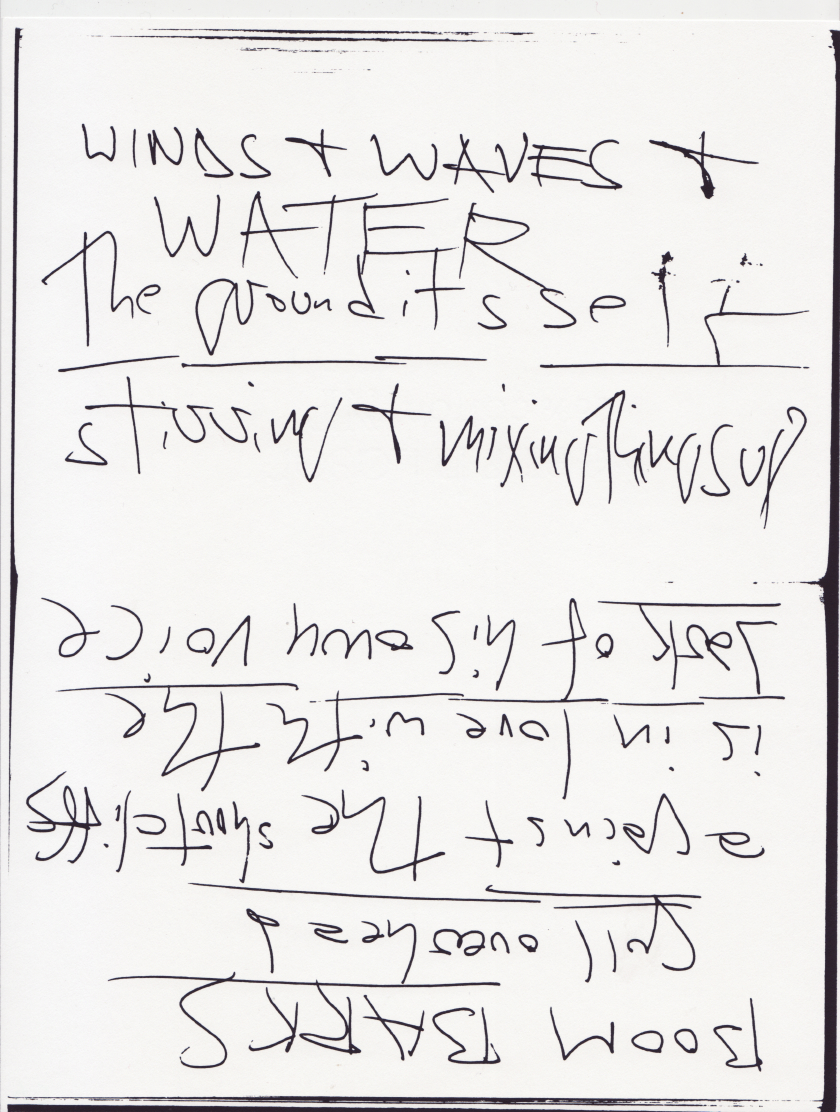 WINDS + WAVES +
WATER
The ground itsself
stirring + mixing things up
BOOM BARKS
gull overhead
against the cliffs
is in love with the
of his own voice